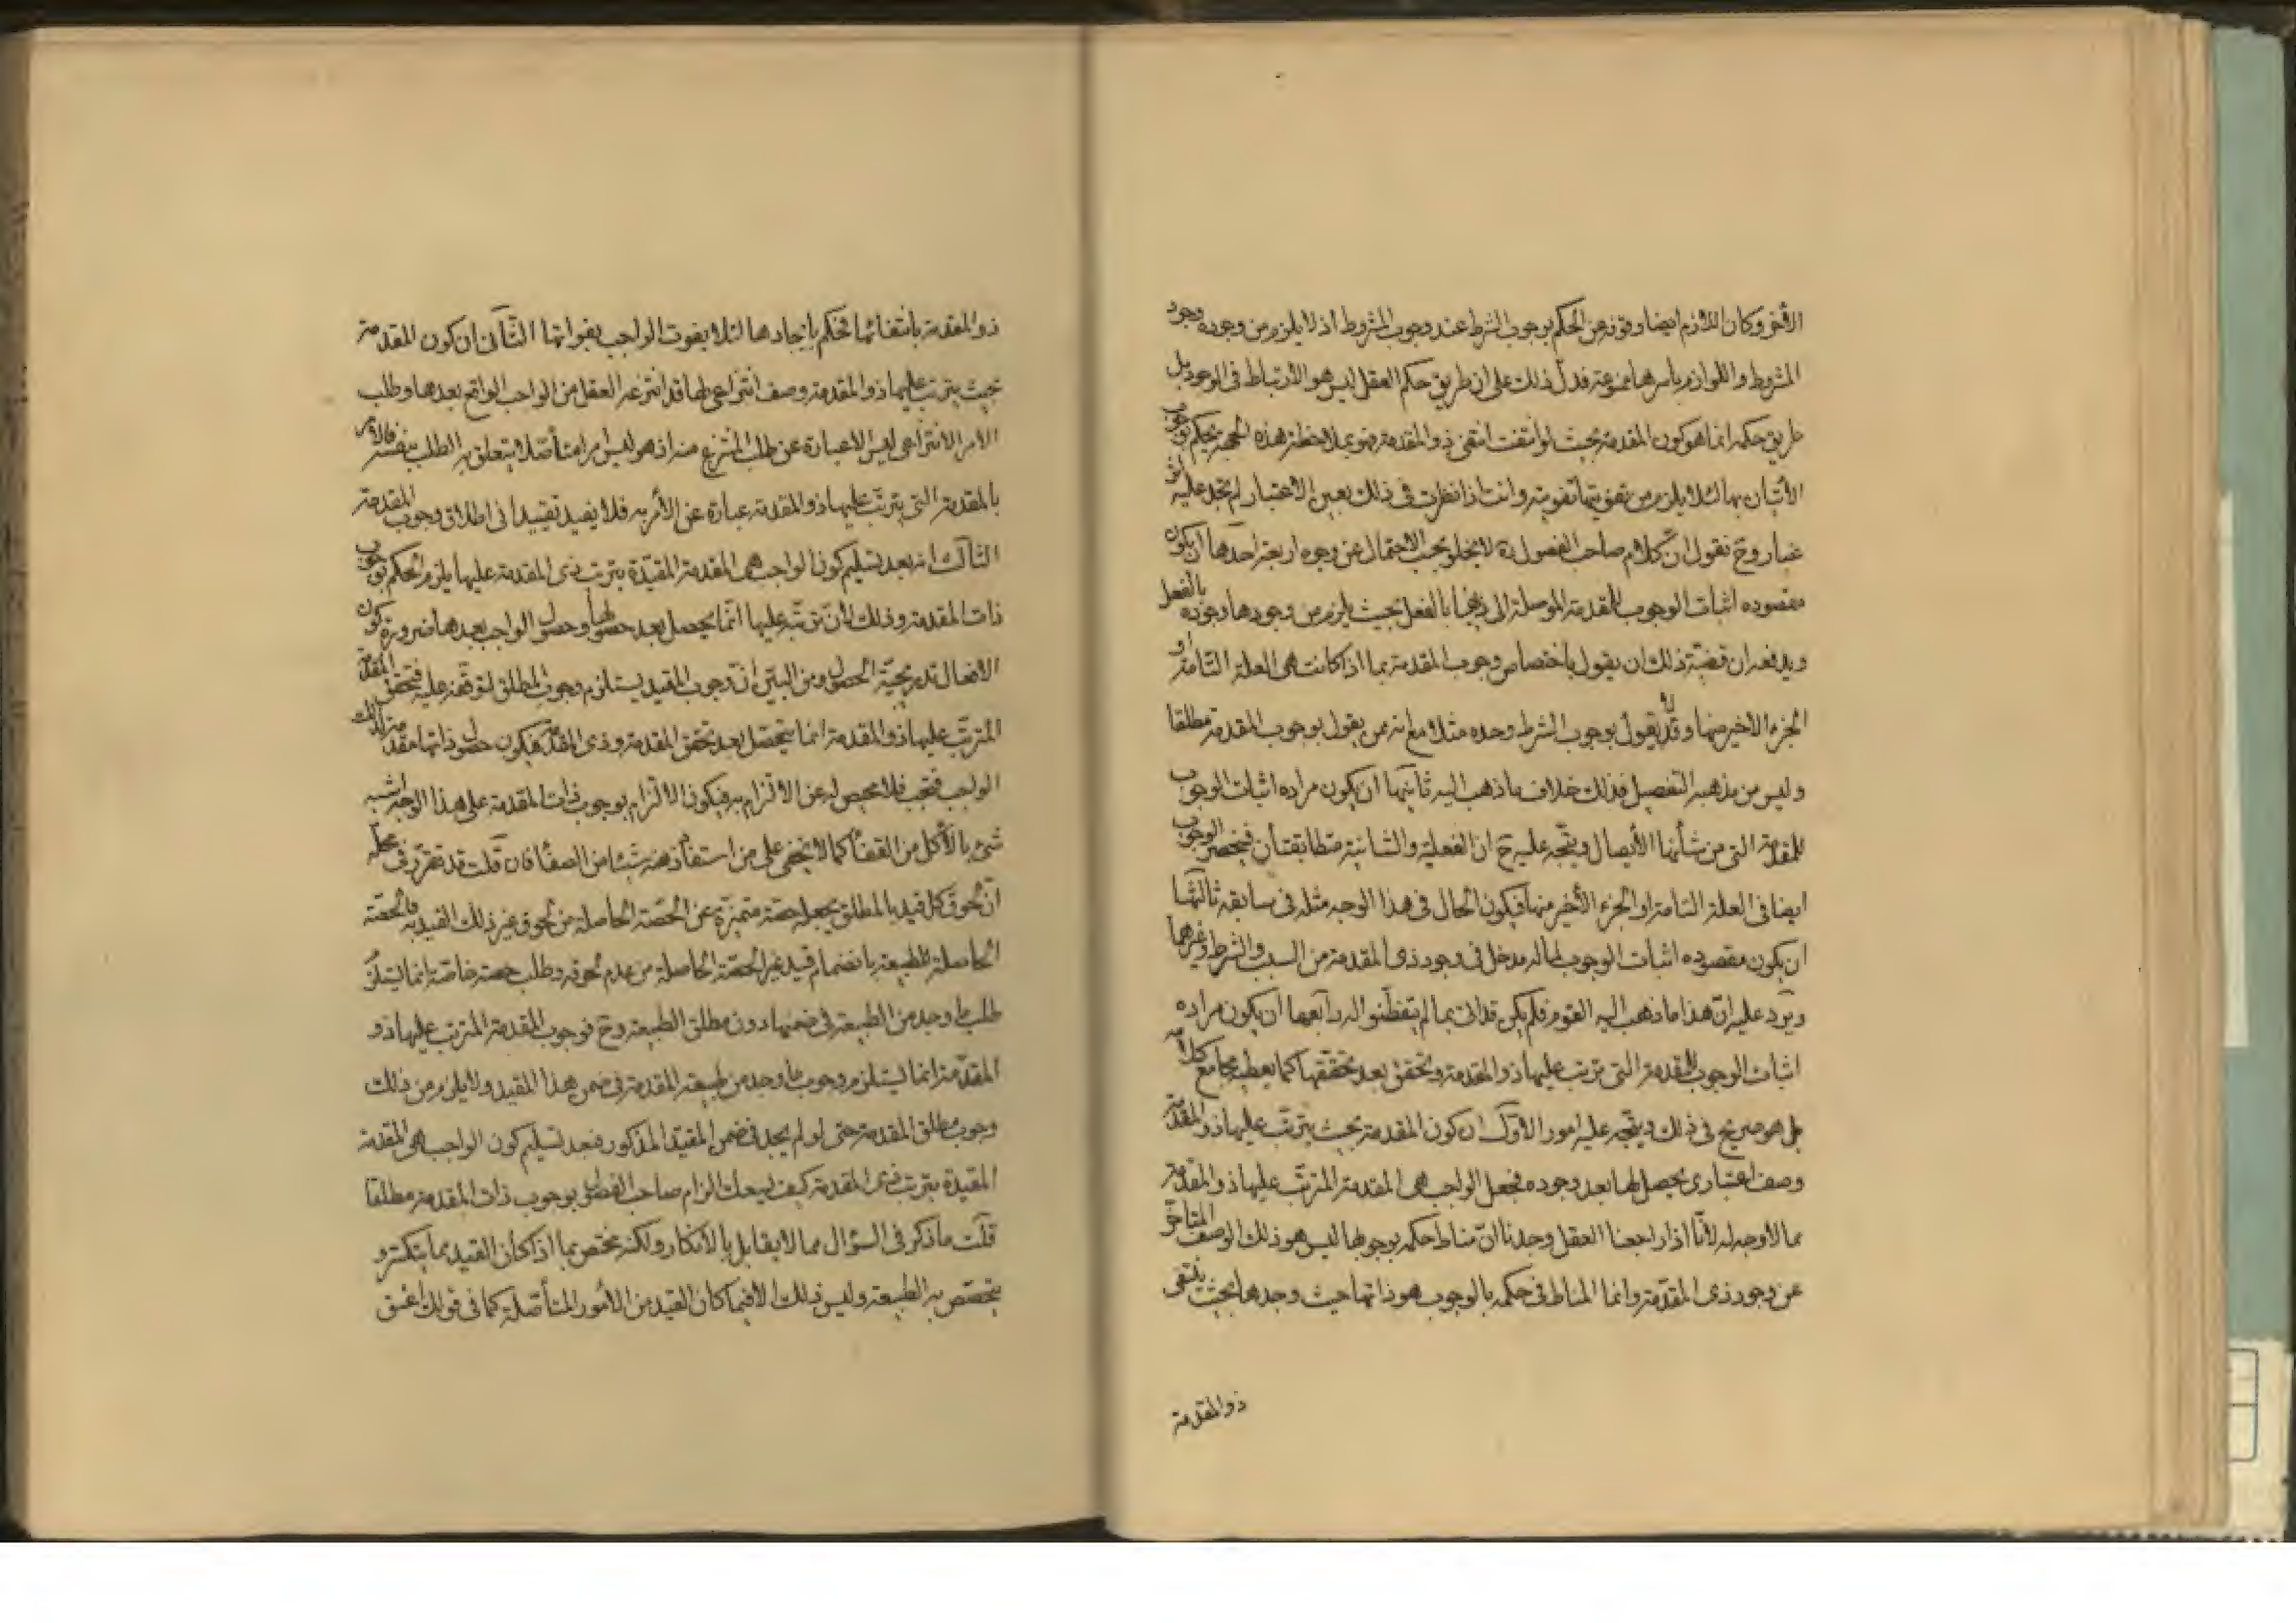 الآخر وكان اللازم ايضا وقوفه عن الحكم بوجوب الشرط عند وجوب المشروط اذ لا يلزم من وجوده وجود
المشروط واللوازم باسرها ممنوعة فدل ذلك على ان طريق حكم العقل ليس هو الارتباط فى الوجود بل
طريق حكمه انما هو كون المقدمة بحيث لو انتفت انتفى ذو المقدمة فهو بملاحظة هذه الجهة يحكم بوجوب
الأتيان بها لئلا يلزم من تفويتها تفويته وانت اذا نظرت فى ذلك بعين الاعتبار لم تجد عليه اثر
غبار وح نقول ان كلام صاحب الفصول ره لا يخلو بحسب الاحتمال عن وجوه اربعة احدها ان يكون
مقصوده اثبات الوجوب للمقدمة الموصلة الى ذيها بالفعل بحيث يلزم من وجودها وجوده بالفعل
ويدفعه ان قضية ذلك ان يقول باختصاص وجوب المقدمة بما اذا كانت هى العلة التامة او
الجزء الاخير منها وقد لا يقول بوجوب الشرط وحده مثلا مع انه ممن يقول بوجوب المقدمة مطلقا
وليس من مذهبه التفصيل فذلك خلاف ما ذهب اليه ثانيها ان يكون مراده اثبات الوجوب
للمقدمة التى من شأنها الأيصال ويتجه عليه ح ان الفعلية والشانية متطابقتان فينحصر الوجوب
ايضا فى العلة التامة او الجزء الأخير منها فيكون الحال فى هذا الوجه مثله فى سابقه ثالثها
ان يكون مقصوده اثبات الوجوب لما له مدخل فى وجود ذى المقدمة من السبب والشرط وغيرهما
ويرد عليه ان هذا ما ذهب اليه القوم فلم يكن قد اتى بما لم يتفطنوا له رابعها ان يكون مراده
اثبات الوجوب للمقدمة التى يترتب عليها ذو المقدمة وتحقق بعد تحققها كما يعطيه مجامع كلامه
بل هو صريح فى ذلك ويتجه عليه امور الاول ان كون المقدمة بحيث يترتب عليها ذو المقدمة
وصف اعتبارى يحصل لها بعد وجوده فجعل الواجب هى المقدمة المترتب عليها ذو المقدمة
مما لا وجه له لأنا اذا راجعنا العقل وجدنا ان مناط حكمه بوجوبها ليس هو ذلك الوصف المتاخر
عن وجود ذى المقدمة وانما المناط فى حكمه بالوجوب هو ذاتها حيث وجدها بحيث ينتفى
ذو المقدمة
ذو المقدمة بانتفائها فحكم بايجادها لئلا يفوت الواجب بفواتها الثانى ان كون المقدمة
بحيث يترتب عليها ذو المقدمة وصف انتزاعى لها قد انتزعه العقل من الواجب الواقع بعدها وطلب
الامر الانتزاعى ليس الا عبارة عن طلب المنتزع منه اذ هو ليس امرا متأصلا يتعلق به الطلب بنفسه فالامر
بالمقدمة التى يترتب عليها ذو المقدمة عبارة عن الأمر به فلا يفيد تقييدا فى اطلاق وجوب المقدمة
الثالث انه بعد تسليم كون الواجب هى المقدمة المقيدة بترتب ذى المقدمة عليها يلزم الحكم بوجوب
ذات المقدمة وذلك لأن ترتبه عليها انما يحصل بعد حصولها وحصول الواجب بعدها ضرورة كون
الافعال تدريجية الحصول ومن البين ان وجوب المقيد يستلزم وجوب المطلق لتوقفه عليه فتحقق المقدمة
المترتب عليها ذو المقدمة انما يتحصل بعد تحقق المقدمة وذى المقدمة فيكون حصول ذاتها مقدمة لذلك
الواجب فتجب فلا محيص له عن الالتزام به فيكون الالتزام بوجوب ذات المقدمة على هذا الوجه اشبه
شئ بالأكل من القفا كما لا يخفى على من استفاد منه شيئا من الصفا فان قلت قد تقرر فى محله
ان لحوق كل قيد بالمطلق يجعله حصة متميزة عن الحصة الحاصلة من لحوق غير ذلك القيد به فالحصة
الحاصلة للطبيعة بانضمام قيد غير الحصة الحاصلة من عدم لحوقه وطلب حصة خاصة انما يستلزم
طلب ما وجد من الطبيعة فى ضمنها دون مطلق الطبيعة وح فوجوب المقدمة المترتب عليها ذو
المقدمة انما يستلزم وجوب ما وجد من طبيعة المقدمة فى ضمن هذا المقيد ولا يلزم من ذلك
وجوب مطلق المقدمة حتى لو لم يوجد فى ضمن المقيد المذكور فبعد تسليم كون الواجب هى المقدمة
المقيدة بترتب ذى المقدمة كيف يسعك الزام صاحب الفصول بوجوب ذات المقدمة مطلقا
قلت ما ذكر فى السؤال مما لا يقابل بالأنكار ولكنه يختص بما اذا كان القيد مما يتكثر و
يتخصص به الطبيعة وليس ذلك الا فيما كان القيد من الأمور المتأصلة كما فى قولك اعتق